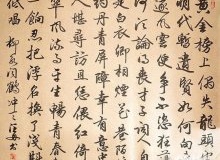 黄金榜上偶失龍頭望
明代暫遺賢如何向未
遂風雲便爭不恣狂蕩
何須論得喪才子詞人自
是白衣卿相煙花巷陌依
約丹青屏障幸有意中
人堪尋訪且恁偎紅倚
翠風流事平生暢青春
都一餉忍把浮名換了淺斟
低唱 柳永詞鶴沖天
書